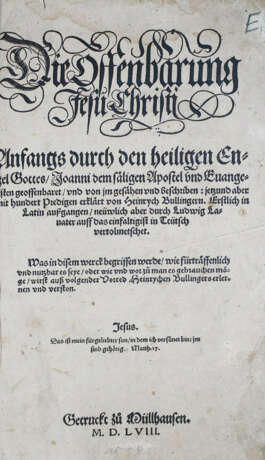 E
Die Offenbarung
Jesu Christi
Anfangs durch den heiligen En-
gel Gottes / Joanni dem säligen Apostel vnd Euange-
listen geoffenbaret / vnd von jm gesähen vnd beschriben : jetzund aber
mit hundert Predigen erklärt von Heinrych Bullingern. Erstlich in
Latin außgangen / neüwlich aber durch Ludwig La-
uater auff das einfaltigist in Teütsch
vertolmetschet.
Was in disem werck begriffen werde / wie fürträffenlich
vnd nutzbar es seye / oder wie vnd wor zů man es gebrauchen mö-
ge / wirst auß volgender Vorred Heinrychen Bullingers erler-
nen vnd verston.
Jesus.
Das ist mein fürgeliebter sun / in dem ich versünet bin : jm
sind gehörig. Matth. 17.
Getruckt zů Müllhausen.
M. D. LVIII.